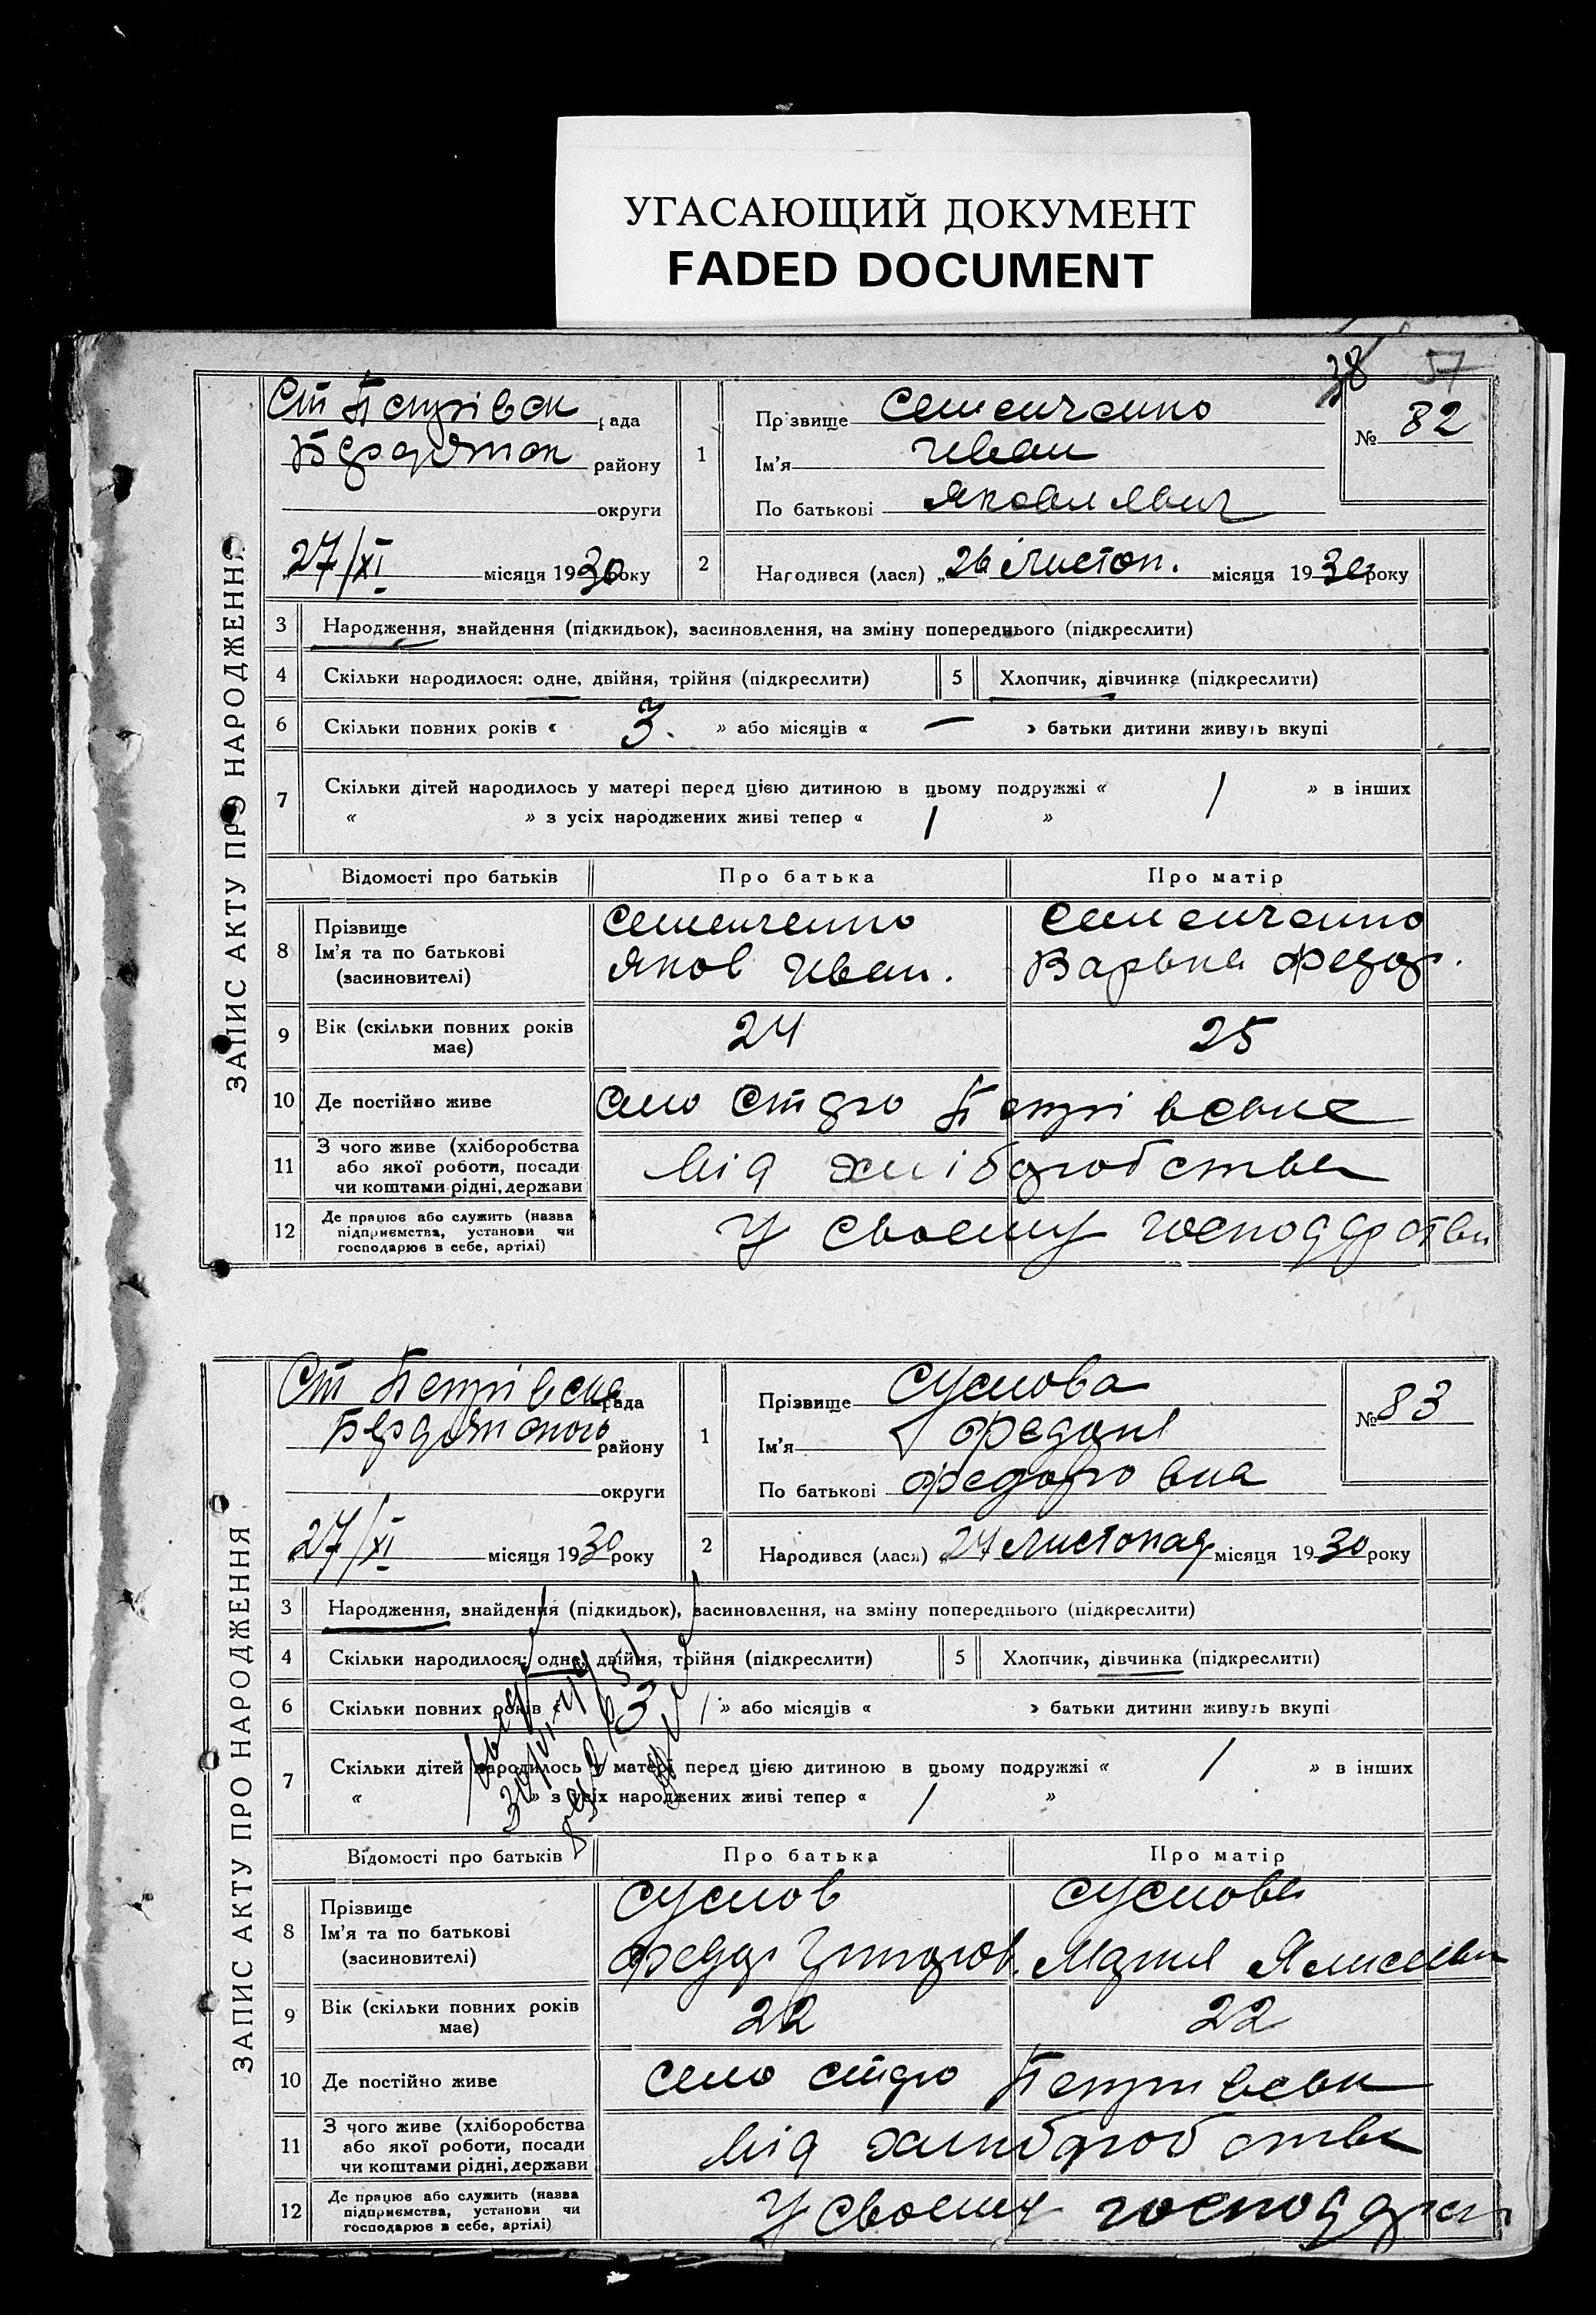 УГАСАЮЩИЙ ДОКУМЕНТ
FADED DOCUMENT
38 57
ЗАПИС АКТУ ПРО НАРОДЖЕННЯ
Ст Петрівск рада
Бердянск району
округи
27/XI місяця 1930 року
1 Прізвище Семенченко
Ім'я Иван
По батькові Яковлевич
№ 82
2 Народився (лася) „26 Листоп. місяця 1930 року
3 Народження, знайдення (підкидьок), засиновлення, на зміну попереднього (підкреслити)
4 Скільки народилося: одне, двійня, трійня (підкреслити) 5 Хлопчик, дівчинка (підкреслити)
6 Скільки повних років « 3. » або місяців « — » батьки дитини живуть вкупі
7 Скільки дітей народилось у матері перед цією дитиною в цьому подружжі « 1 » в інших
« » з усіх народжених живі тепер « 1 »
Відомості про батьків Про батька Про матір
8 Прізвище
Ім'я та по батькові
(засиновителі)
Семенченко
Яков Иван.
Семенченко
Варька Федор.
9 Вік (скільки повних років
має)
24 25
10 Де постійно живе село Старо Петрівська
11 З чого живе (хліборобства
або якої роботи, посади
чи коштами рідні, держави
від хліборобства
12 Де працює або служить (назва
підприємства, установи чи
господарює в себе, артілі)
У своему господарстви
ЗАПИС АКТУ ПРО НАРОДЖЕННЯ
Ст Петрівска рада
Бердянского району
округи
27/XI місяця 1930 року
1 Прізвище Суслова
Ім'я Федоня
По батькові Федоровна
№ 83
2 Народився (лася) „24 Листопад місяця 1930 року
3 Народження, знайдення (підкидьок), засиновлення, на зміну попереднього (підкреслити)
4 Скільки народилося: одне, двійня, трійня (підкреслити) 5 Хлопчик, дівчинка (підкреслити)
6 Скільки повних років « 3 » або місяців « » батьки дитини живуть вкупі
7 Скільки дітей народилось у матері перед цією дитиною в цьому подружжі « 1 » в інших
« » з усіх народжених живі тепер « 1 »
Відомості про батьків Про батька Про матір
8 Прізвище
Ім'я та по батькові
(засиновителі)
Суслов
Федор Григоров.
Суслова
Мария
9 Вік (скільки повних років
має)
22 22
10 Де постійно живе село старо Петривськ
11 З чого живе (хліборобства
або якої роботи, посади
чи коштами рідні, держави
від хлиборобства
12 Де працює або служить (назва
підприємства, установи чи
господарює в себе, артілі)
У своему господарст